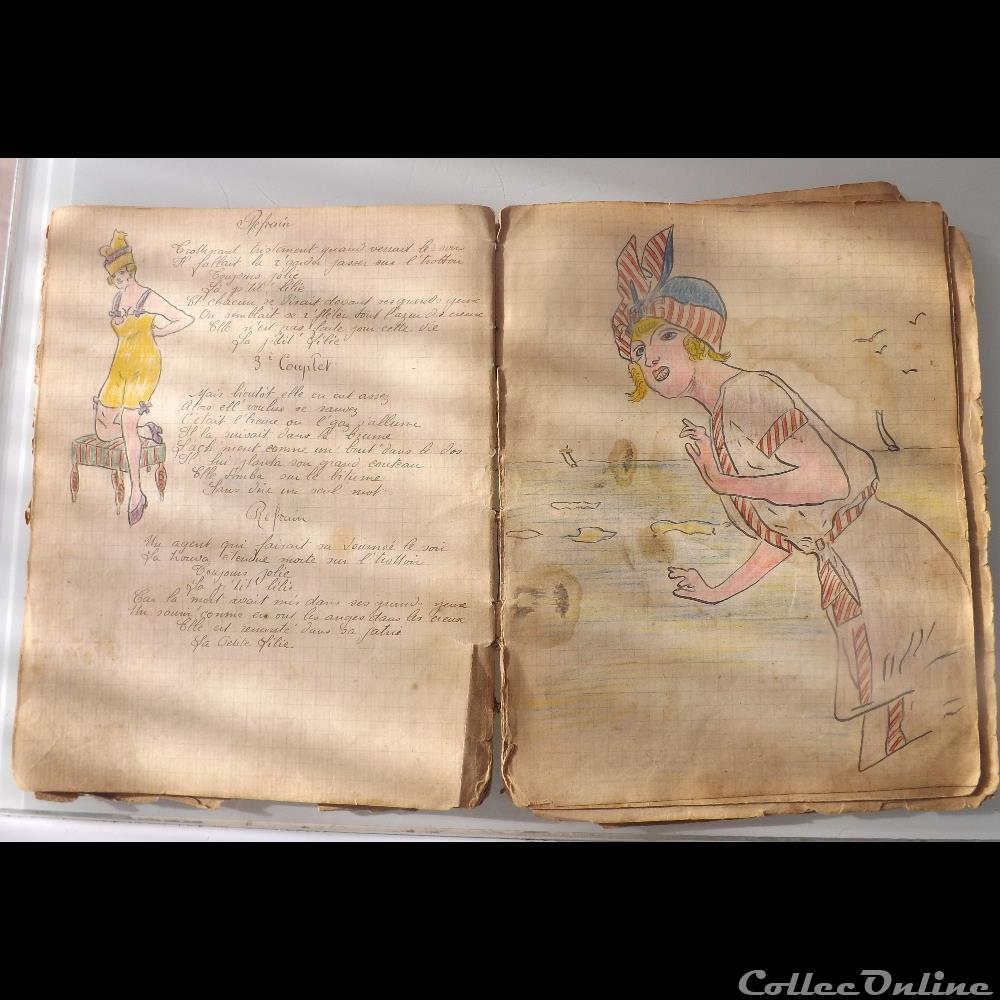 Refrain
Trottinant tristement quand venait le soir
Il fallait la r'garder passer sur l'trottoir
Toujours jolie
La p'tit' Lilie
Et chacun se disait devant ses grands yeux
Ou semblait se r'fléter tout l'azur des cieux
Elle n'est pas faite pour cette vie
La p'tit' Lilie
3e Couplet
Mais bientôt elle en eut assez
Alors ell' voulut se sauver
C'était l'heure ou l'gaz s'allume
Il la suivait dans la brume
comme un brut dans le dos
Il lui planta son grand couteau
Elle tomba sur le bitume
Sans dire un seul mot
Refrain
Un agent qui faisait sa tournée le soir
La trouva étendue morte sur l'trottoir
Toujours jolie
La p'tit' Lilie
Car la mort avait mis dans ses grands yeux
Un souri' comme en ont les anges dans les cieux
Elle est remonté dans sa patrie
La Petite Lilie.
ColleeOnline